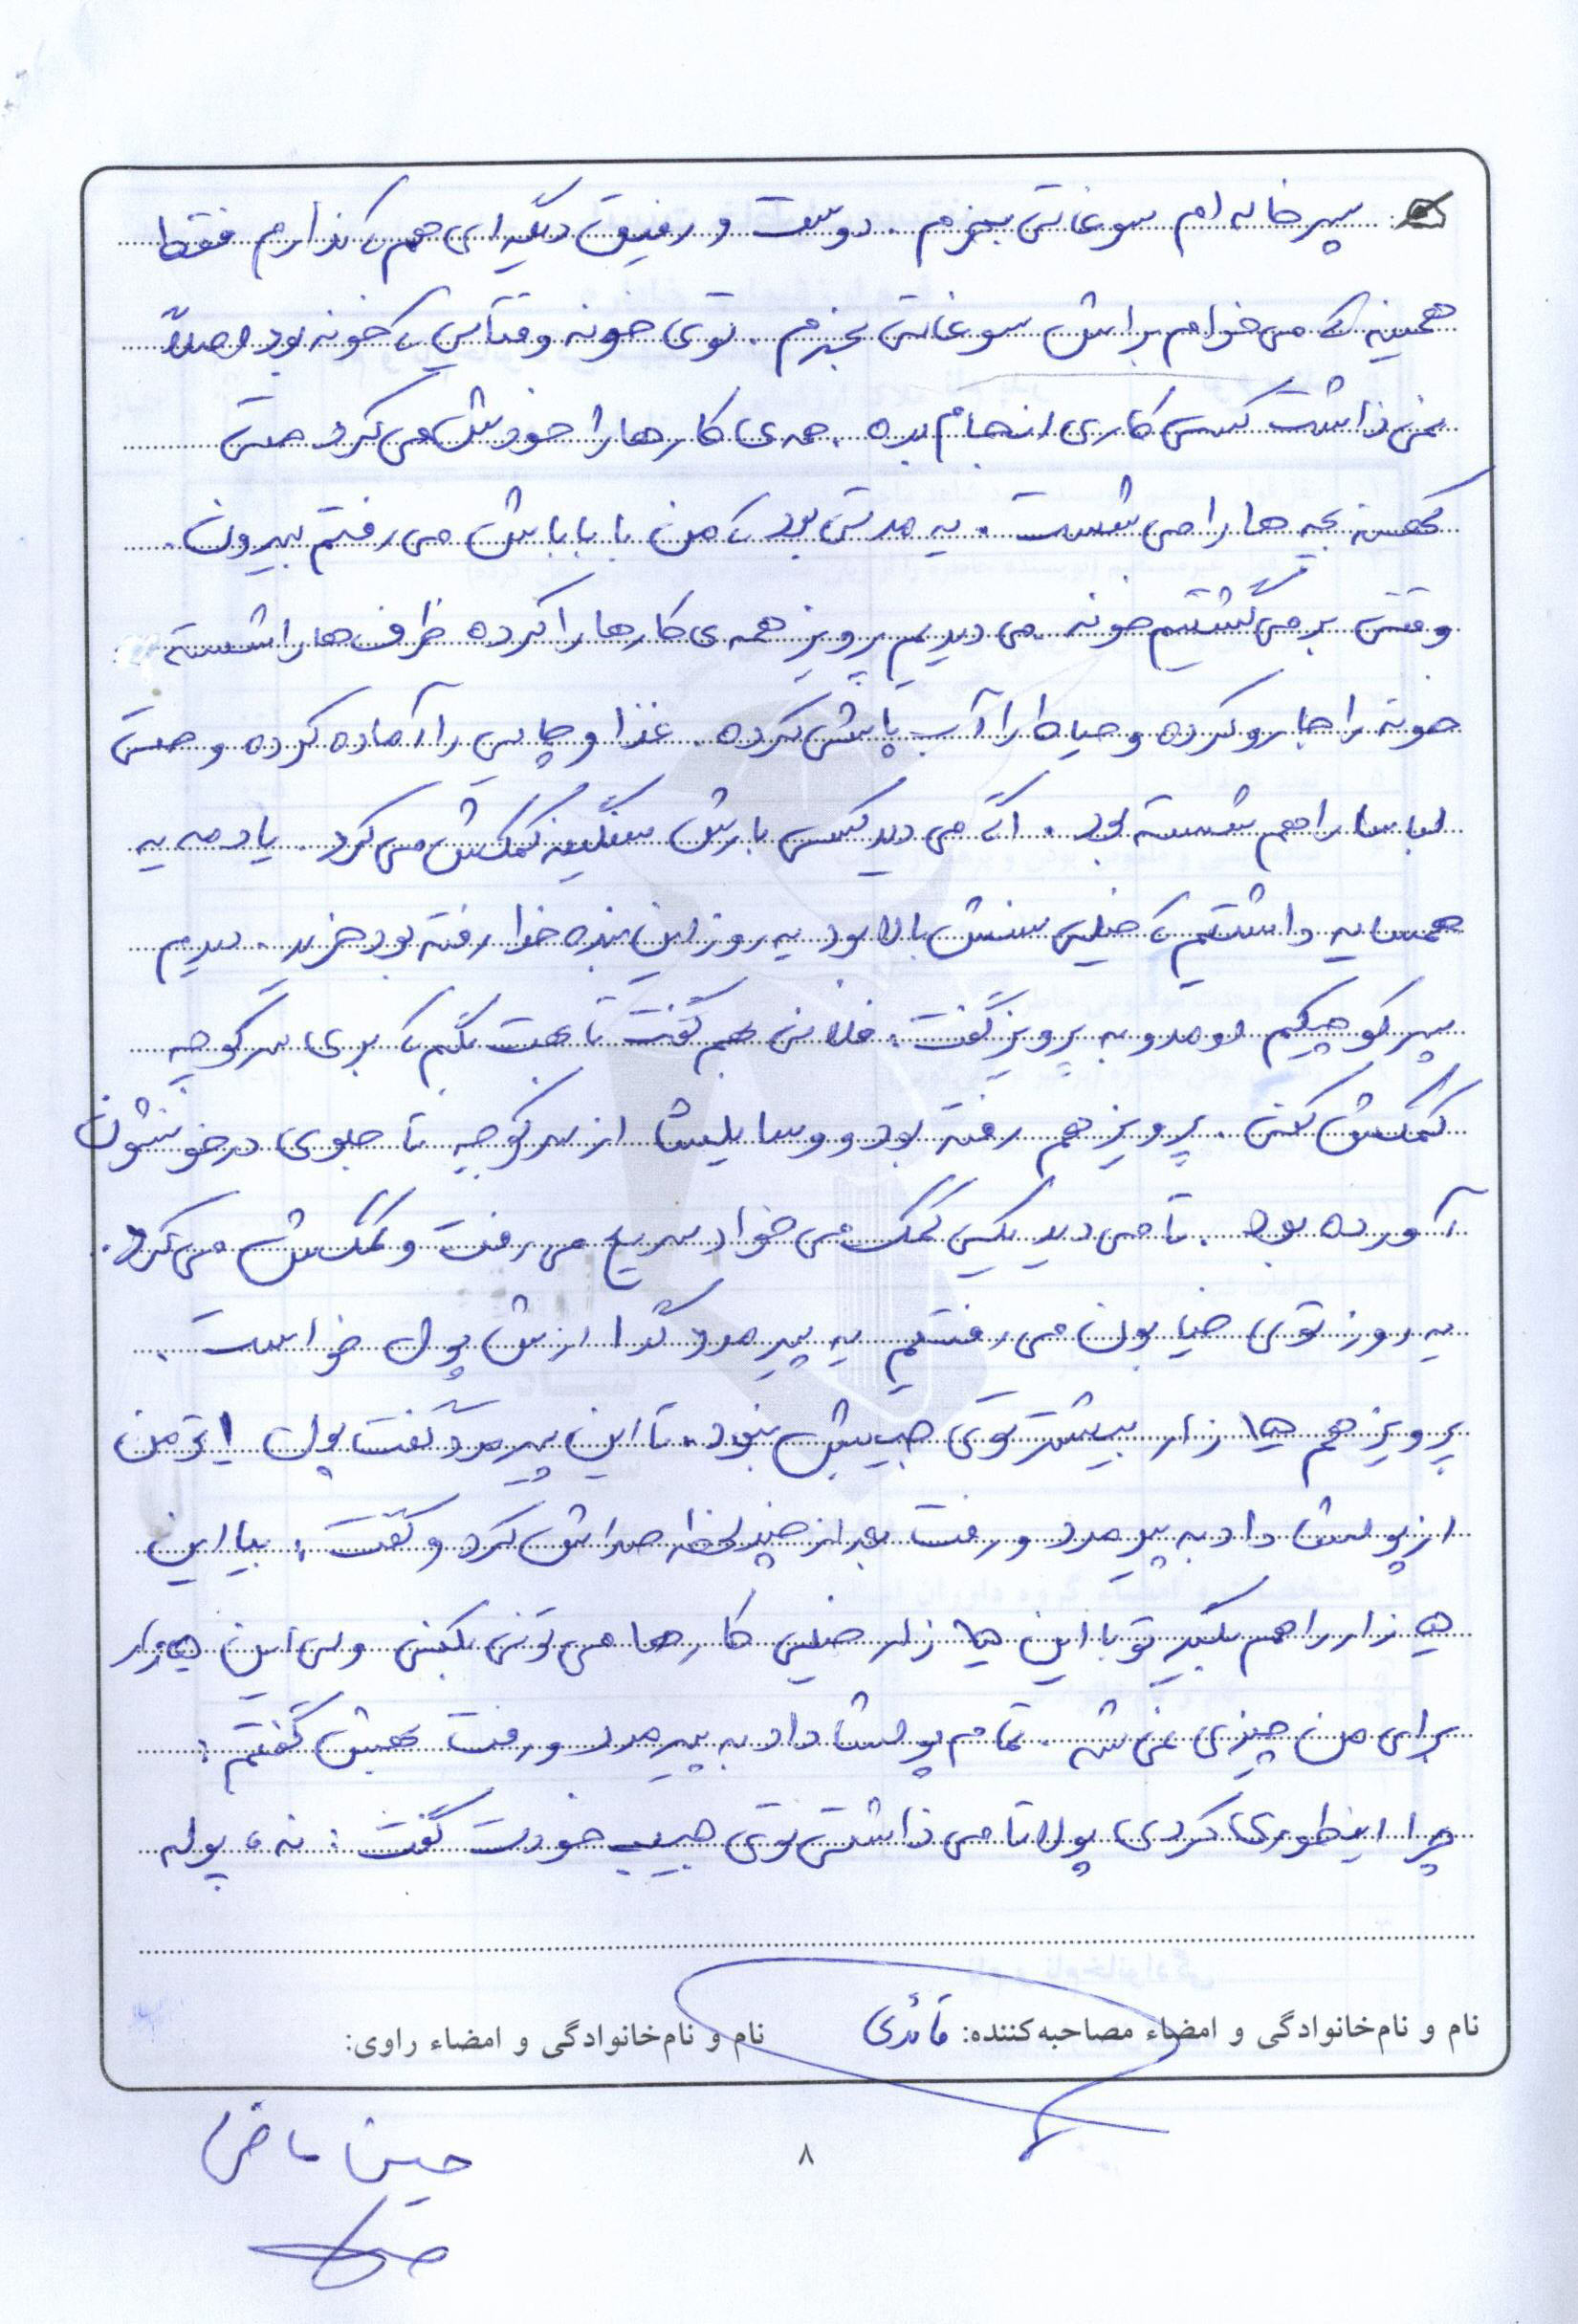 پسر خاله ام سوغاتی بخرم. دوست و رفیق دیگه ای هم که ندارم فقط
همینه که می خوام براش سوغاتی بخرم. توی خونه وقتایی که خونه بود اصلاً
نمی ذاشت کسی کاری انجام بده. همه ی کارها را خودش می کرد حتی
کهنه بچه ها را می شست. یه مدتی بود که من با باباش می رفتم بیرون.
وقتی بر می گشتیم خونه می دیدیم پرویز همه ی کارها را کرده ظرف ها را شسته
خونه را جارو کرده و حیاط را آب پاش کرده. غذا و چایی را آماده کرده و حتی
لباسا را هم شسته بود. اگه می دید کسی بارش سنگینه کمکش می کرد. یادمه یه
همسایه داشتیم که خیلی سنش بالا بود یه روز این بنده خدا رفته بود خرید. دیدیم
پسر کوچیکم اومد و به پرویز گفت: فلانی بهم گفت تا بهت بگم که بری سر کوچه
کمکش کنی. پرویز هم رفته بود و وسایلشا از سر کوچه تا جلوی در خونشون
آورده بود. تا می دید یکی کمک می خواد سریع می رفت و کمکش می کرد.
یه روز توی خیابون می رفتیم یه پیرمرد گدا ازش پول خواست.
پرویز هم هزار بیشتر توی جیبش نبود. تا این پیرمرد گفت پول ۱ تومن
از پولشا داد به پیرمرد و رفت بعد از چند لحظه صداش کرد و گفت: بیا این
هزار را هم بگیر تو با این هزار خیلی کارها می تونی بکنی ولی این هزار
برای من چیزی نمی شه. تمام پولشا داد به پیرمرد و رفت بهش گفتم:
چرا اینطوری کردی پولاتا می ذاشتی توی جیب خودت گفت: نه، پوله
نام و نام‌خانوادگی و امضاء مصاحبه‌کننده: قائدی نام و نام‌خانوادگی و امضاء راوی:
۸